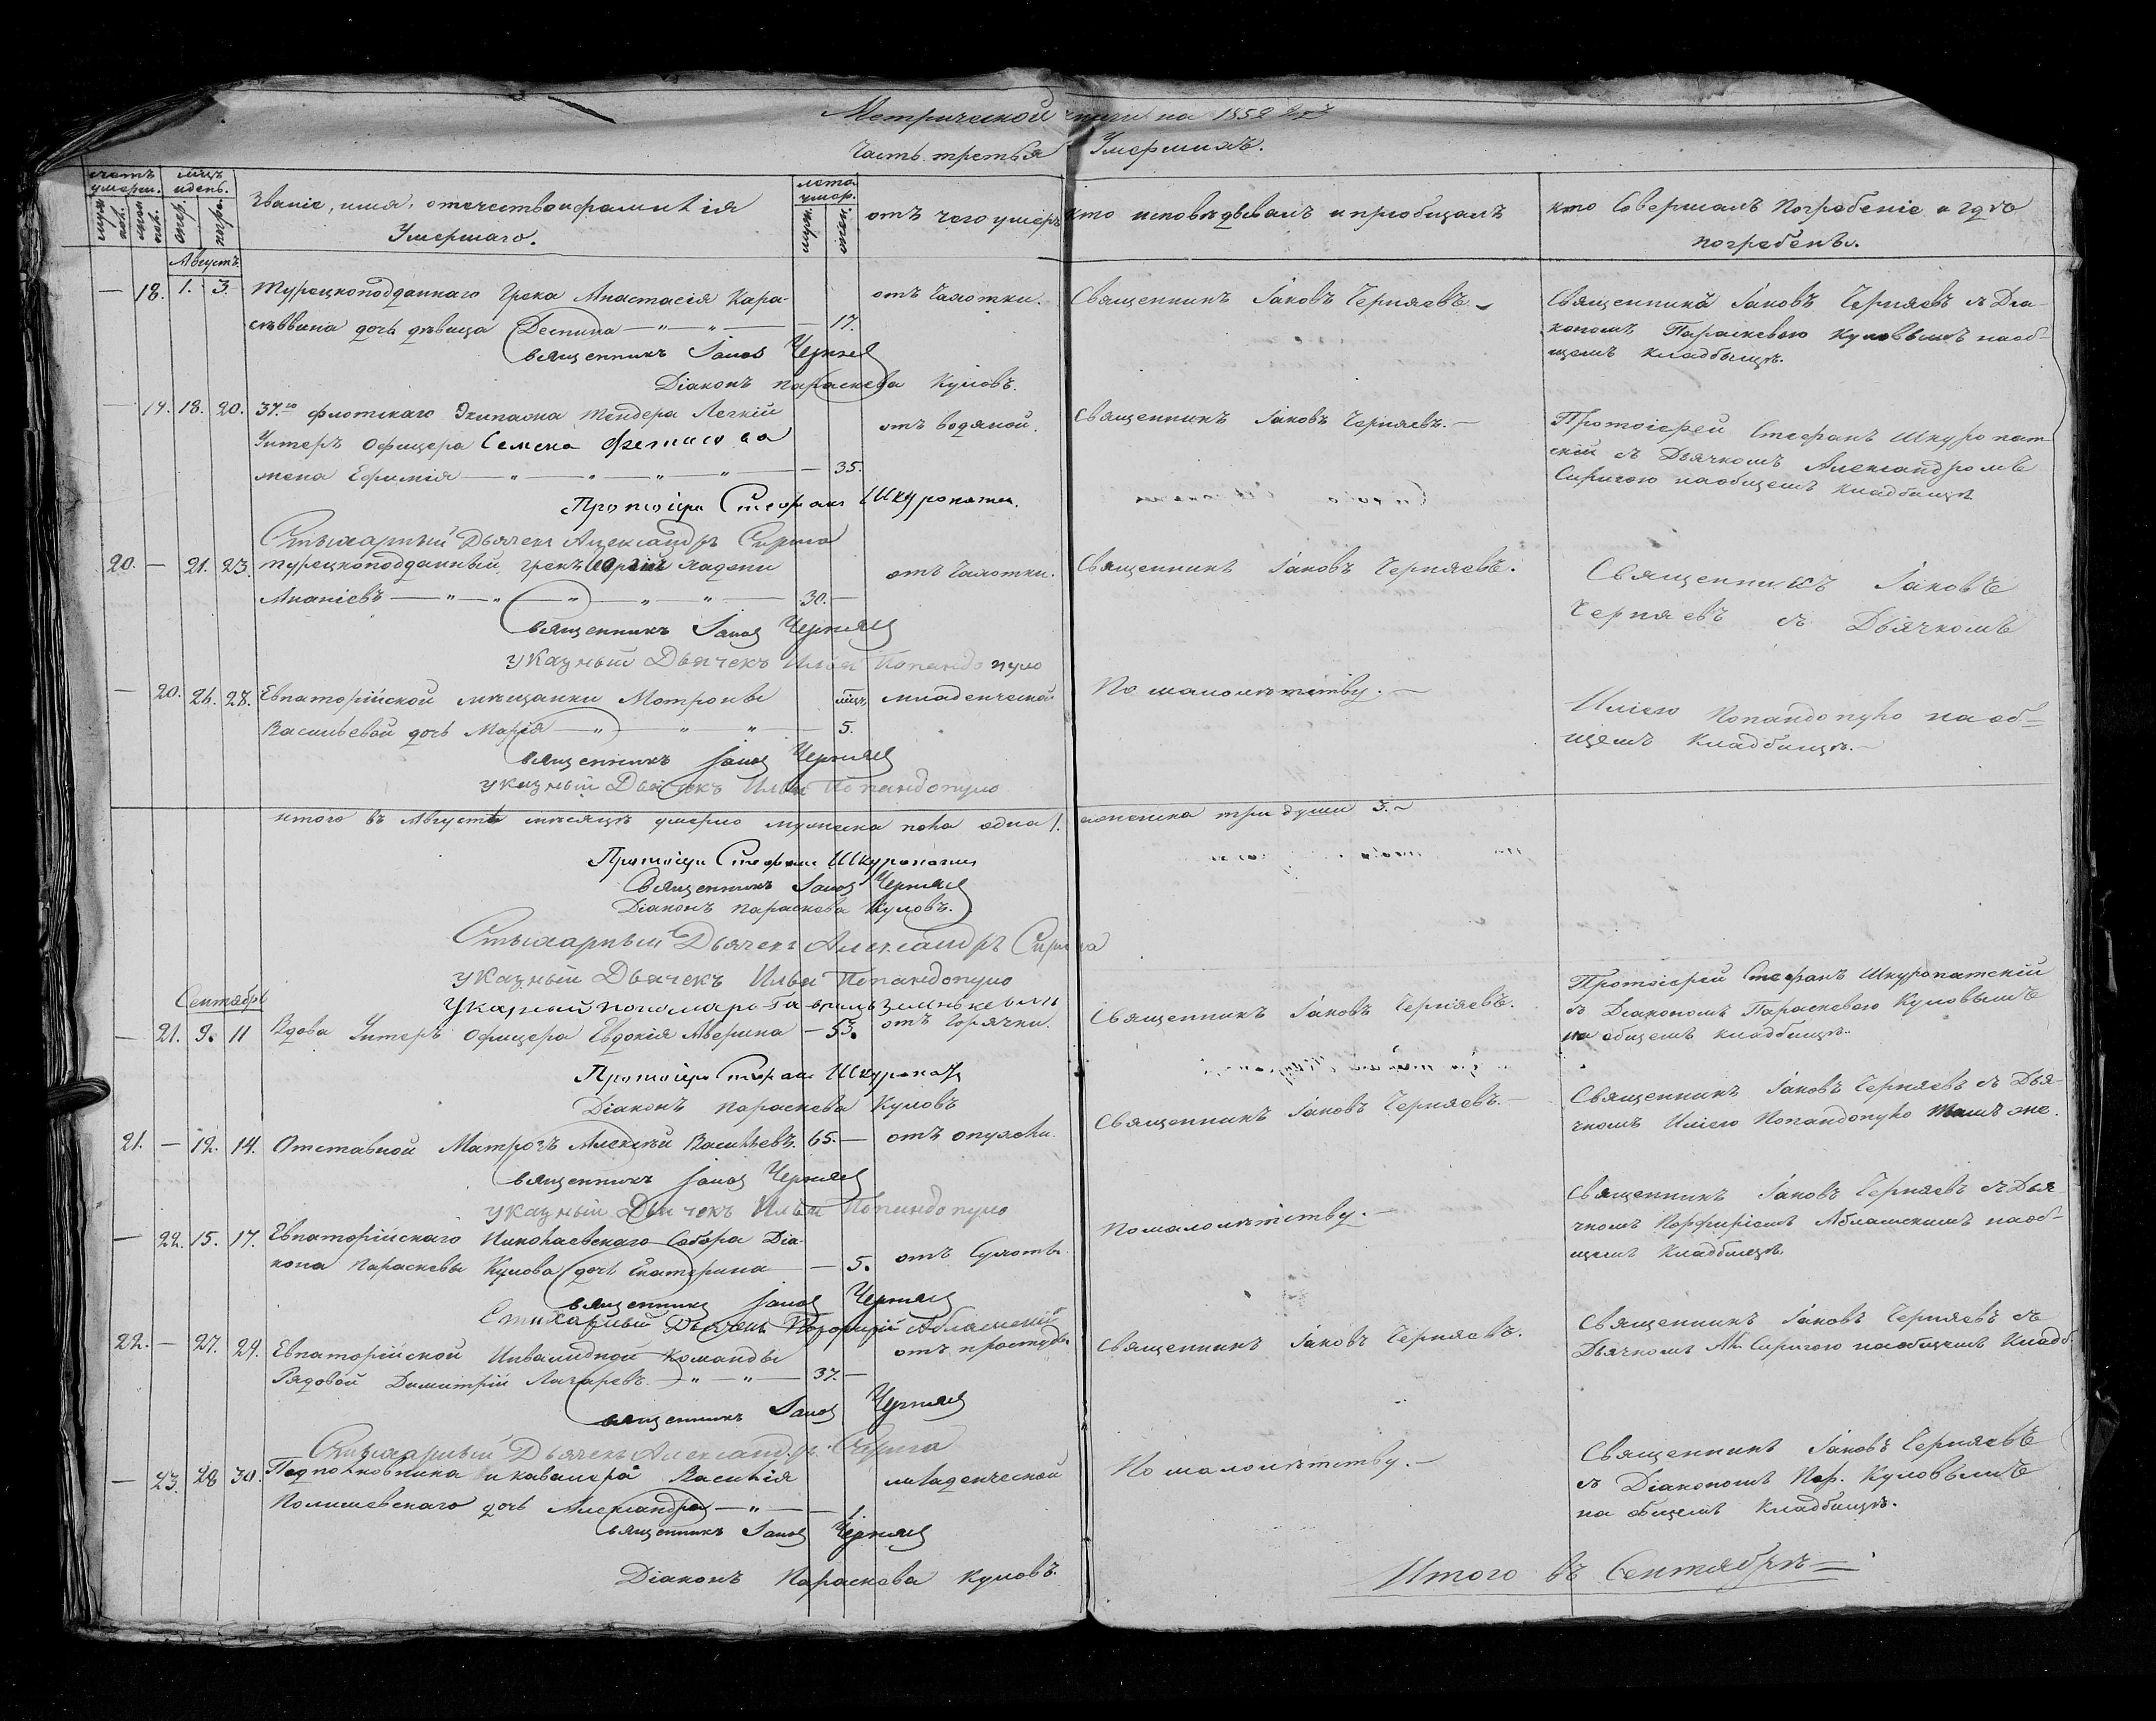 Метрической книги на 1852 годъ
Часть третья Умершихъ.
счетъ умерш. мцъ и день. Званіе, имя, отечество и фамилія лета умер. отъ чего умеръ кто исповѣдывалъ и пріобщалъ кто Совершалъ Погребеніе и гдѣ
муж. пол. жен. пол. смер. погре. Умершаго. муж. жен. погребенъ.
Августъ.
— 18. 1. 3. Турецкоподданнаго Грека Анастасія Кара- отъ Чахотки. Священникъ Іаковъ Черняевъ. Священникъ Іаковъ Черняевъ съ Діа-
дочь дѣвица Деспина — 17. кономъ Параскевою Кумовымъ на об-
Священникъ Іаковъ Черняевъ щемъ кладбищѣ.
Діаконъ Параскева Кумовъ.
— 19. 18. 20. 37.го флотскаго Экипажа Тендера Легкій отъ водяной. Священникъ Іаковъ Черняевъ. Протоіерей Стефанъ Шкуропат-
Унтеръ Офицера Семена Фетисова скій съ Дьячкомъ Александромъ
жена Ефимія — 35. Сиригою на общемъ кладбищѣ
Протоіерей Стефанъ Шкуропатскій
Стихарный Дьячекъ Александръ Сирига
20. — 21. 23. турецкоподданный грекъ отъ Чахотки. Священникъ Іаковъ Черняевъ. Священникъ Іаковъ
Ананіевъ 30. — Черняевъ съ Дьячкомъ
Священникъ Іаковъ Черняевъ
указный Дьячекъ Илья Попандопуло
— 20. 26. 28. Евпаторійской мѣщанки Матроны мцъ. младенческой По малолѣтству. Иліею Попандопуло на об-
Васильевой дочь Марія — 5. щемъ кладбищѣ.
Священникъ Іаковъ Черняевъ
указный Дьячекъ Илья Попандопуло
итого въ Августѣ мѣсяцѣ умерло мужеска пола одна 1. женска три души 3.
Протоіерей Стефанъ Шкуропатскій
Священникъ Іаковъ Черняевъ
Діаконъ Параскева Кумовъ.
Стихарный Дьячекъ Александръ Сирига
указный Дьячекъ Илья Попандопуло
Указный пономарь Гавриилъ
Сентябрь
— 21. 9. 11 Вдова Унтеръ Офицера Евдокія Аверина — 53. отъ Горячки. Священникъ Іаковъ Черняевъ. Протоіерей Стефанъ Шкуропатскій
съ Діакономъ Параскевою Кумовымъ
на общемъ кладбищѣ.
Протоіерей Стефанъ Шкуропатскій
Діаконъ Параскева Кумовъ
21. — 12. 14. Отставной Матрозъ Алексѣй Васильевъ. 65. — отъ опухоли. Священникъ Іаковъ Черняевъ. Священникъ Іаковъ Черняевъ съ Дья-
чкомъ Иліею Попандопуло тамъ же.
Священникъ Іаковъ Черняевъ
указный Дьячекъ Илья Попандопуло
— 22. 15. 17. Евпаторійскаго Николаевскаго Собора Діа- отъ Сухоты По малолѣтству. Священникъ Іаковъ Черняевъ съ Дья-
кона Параскевы Кумова дочь Екатерина — 5. чкомъ Порфиріемъ на об-
щемъ кладбищѣ.
Священникъ Іаковъ Черняевъ
Стихарный Дьячекъ Порфирій
22. — 27. 29. Евпаторійской Инвалидной Команды отъ простуды Священникъ Іаковъ Черняевъ. Священникъ Іаковъ Черняевъ съ
Рядовой Димитрій Лазаревъ 37. — Дьячкомъ Ал. Сиригою на общемъ кладб.
Священникъ Іаковъ Черняевъ
Стихарный Дьячекъ Александръ Сирига
— 23. 28 30. Подполковника и кавалера Василія младенческой По малолѣтству. Священникъ Іаковъ Черняевъ
дочь Александра — 1. съ Діакономъ Пар. Кумовымъ
на общемъ кладбищѣ.
Священникъ Іаковъ Черняевъ
Діаконъ Параскева Кумовъ.
Итого въ Сентябрѣ